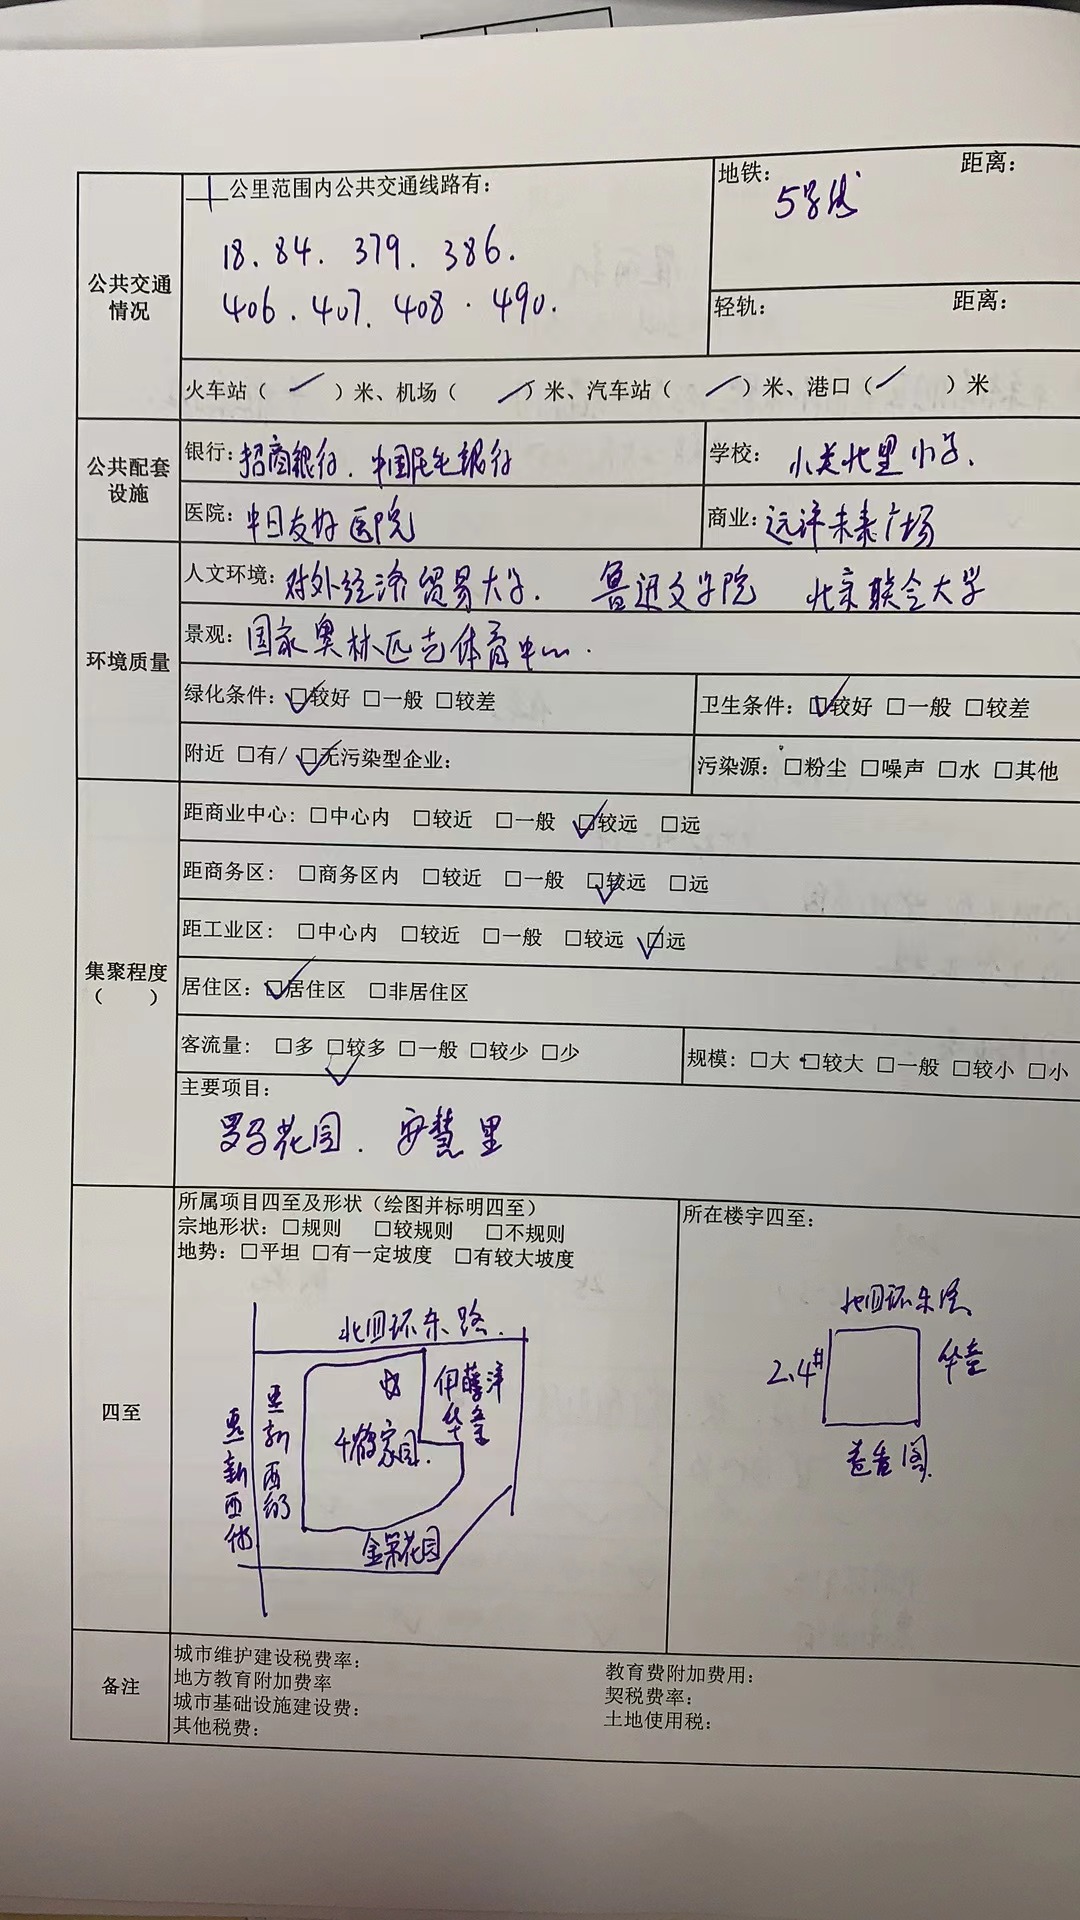 公共交通情况
一公里范围内公共交通线路有：
18. 84. 379. 386.
406. 407. 408. 490.
地铁： 距离：
5号线
轻轨： 距离：
火车站（ ／ ）米、机场（ ／ ）米、汽车站（ ／ ）米、港口（ ／ ）米
公共配套设施
银行：招商银行. 中国民生银行
学校：小关北里小学.
医院：中日友好医院
商业：远洋未来广场
环境质量
人文环境：对外经济贸易大学. 鲁迅文学院 北京联合大学
景观：国家奥林匹克体育中心.
绿化条件：☑较好 □一般 □较差
卫生条件：☑较好 □一般 □较差
附近 □有/ ☑无污染型企业：
污染源：□粉尘 □噪声 □水 □其他
集聚程度
（ ）
距商业中心：□中心内 □较近 □一般 ☑较远 □远
距商务区：□商务区内 □较近 □一般 ☑较远 □远
距工业区：□中心内 □较近 □一般 □较远 ☑远
居住区：☑居住区 □非居住区
客流量：□多 ☑较多 □一般 □较少 □少
规模：□大 □较大 □一般 □较小 □小
主要项目：
罗马花园. 安慧里
四至
所属项目四至及形状（绘图并标明四至）
宗地形状：□规则 □较规则 □不规则
地势：□平坦 □有一定坡度 □有较大坡度
北四环东路.
伊藤洋华堂
千鹤家园.
惠新西街
金泉花园
所在楼宇四至：
北四环东路
2.4#
华堂
备注
城市维护建设税费率：
地方教育附加费率
城市基础设施建设费：
其他税费：
教育费附加费用：
契税费率：
土地使用税：